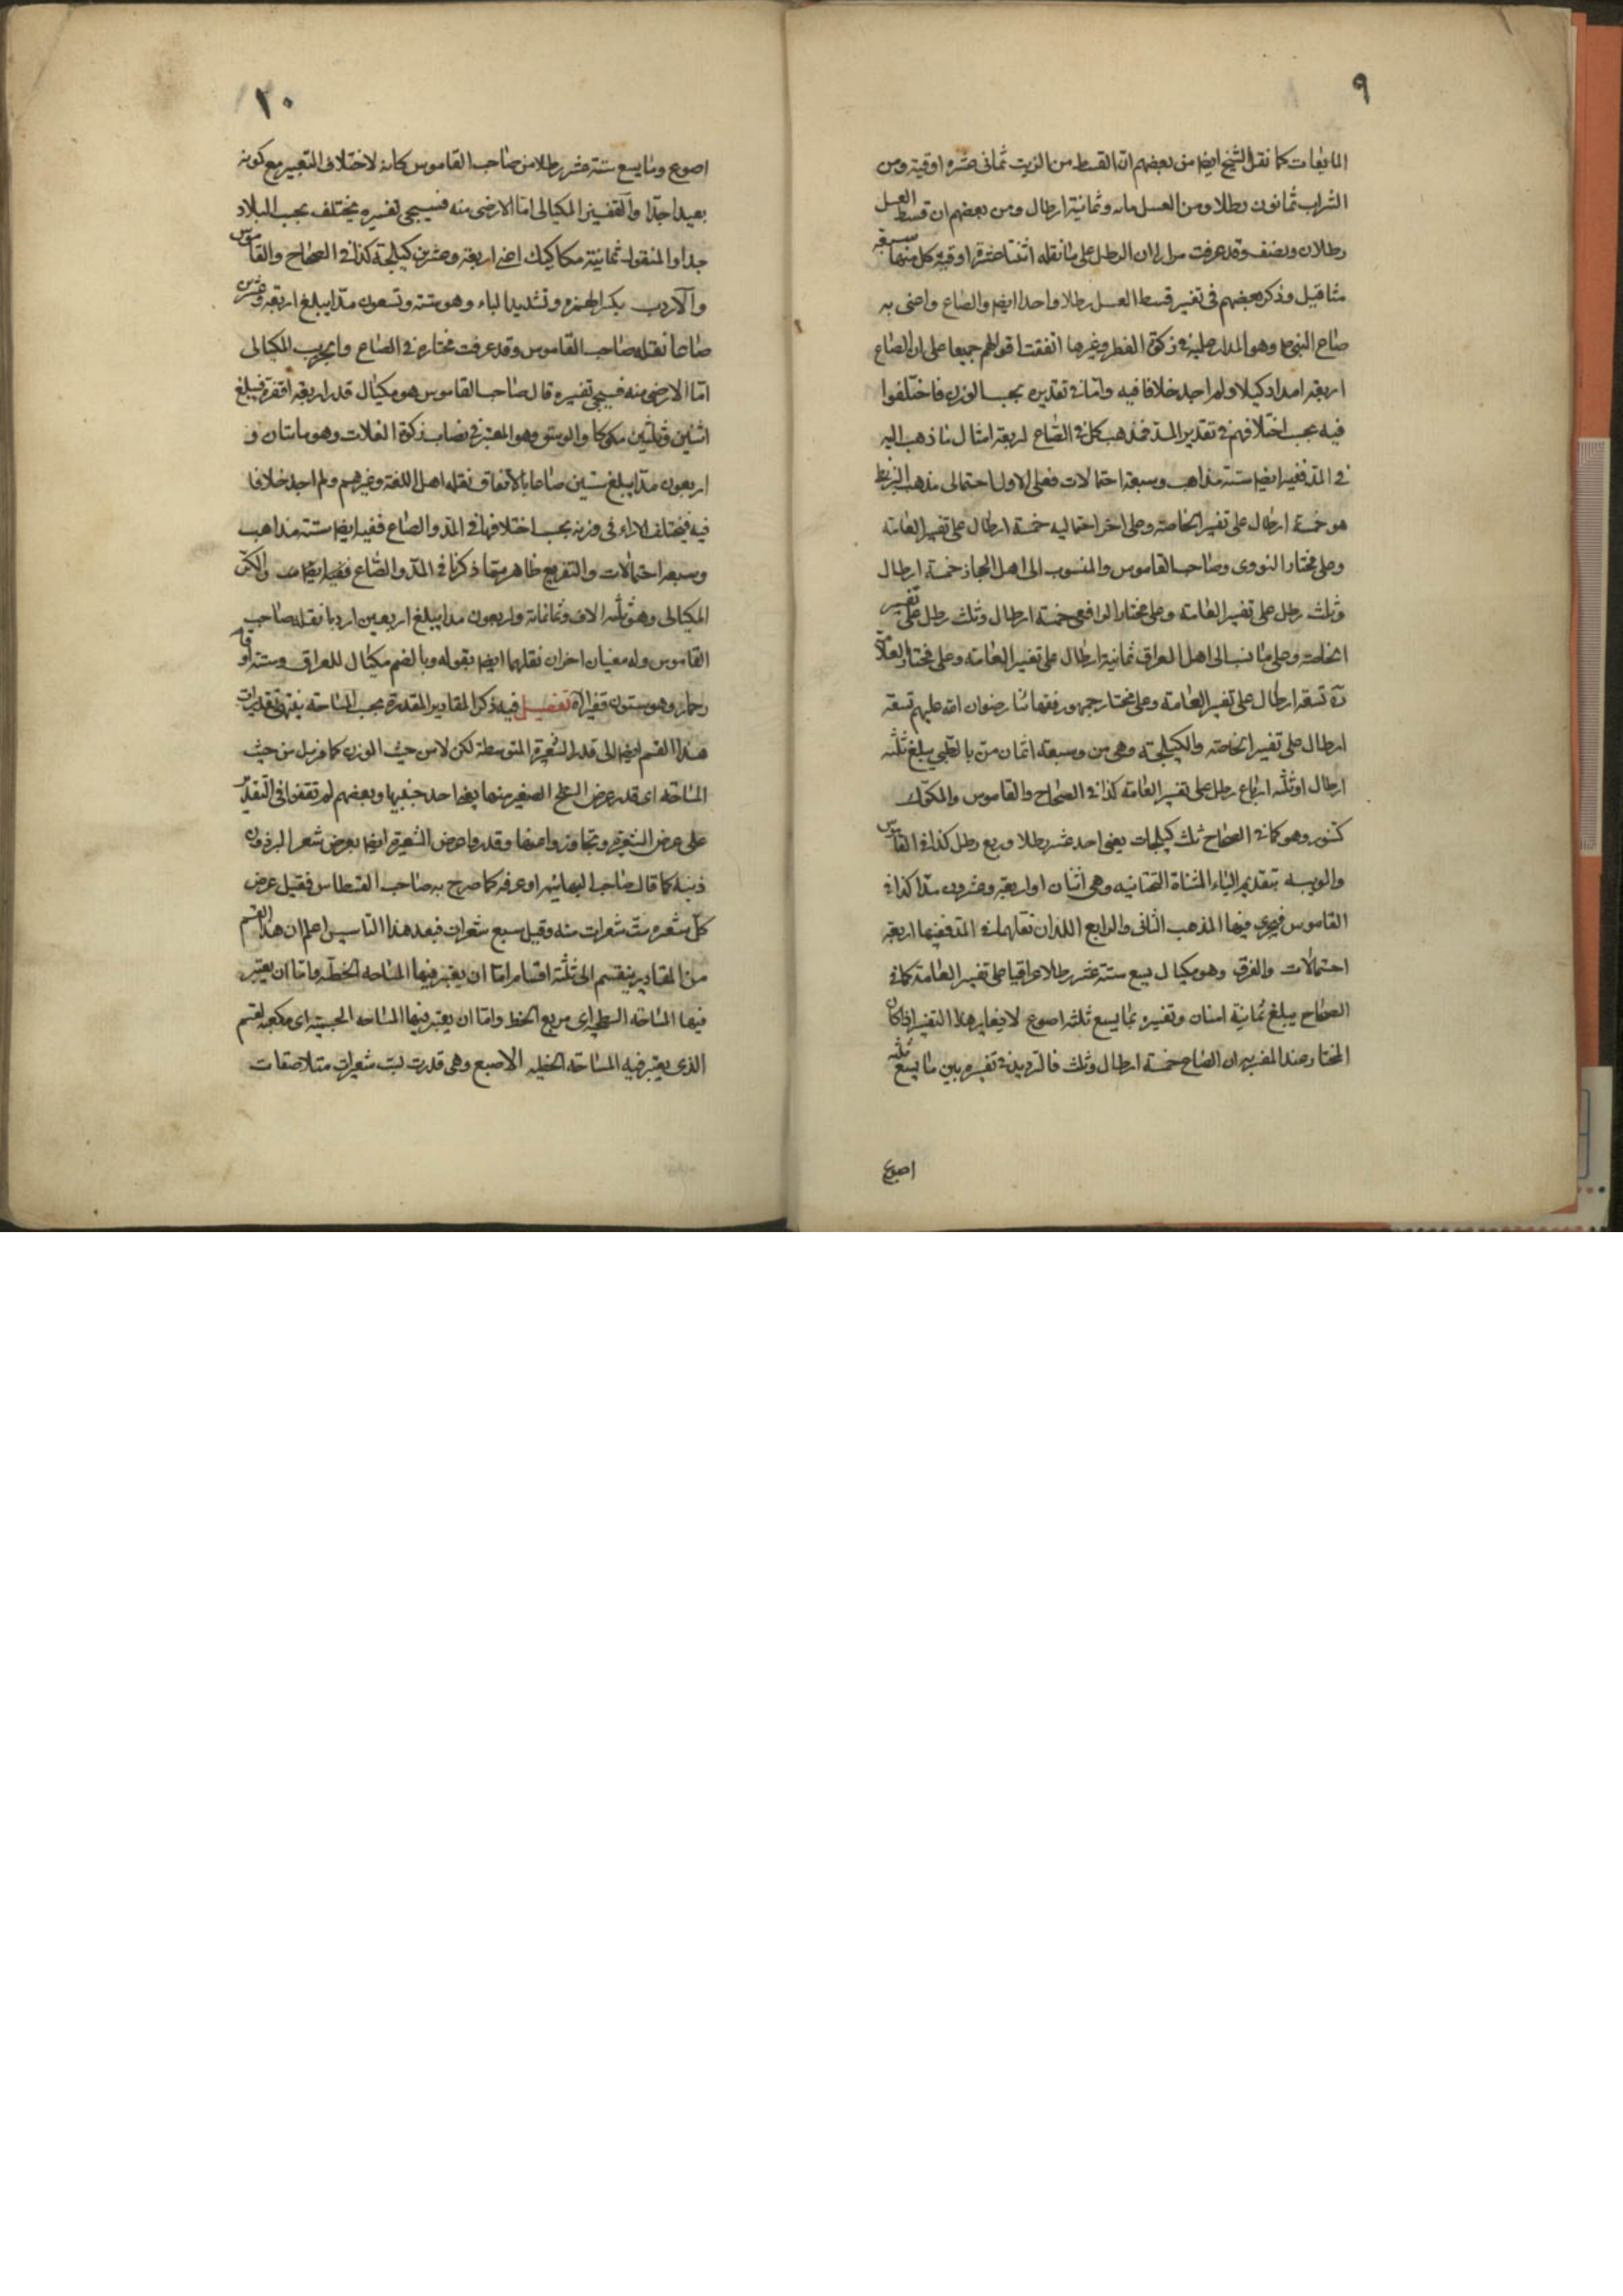 ٩
المايعات كما نقل الشيخ ايضا من بعضهم ان القسط من الزيت ثمانى عشره اوقية ومن
الشراب ثمانون رطلا ومن العسل مائه وثمانية ارطال ومن بعضهم ان قسط العسل
رطلان ونصف وقد عرفت مرارا ان الرطل على ما نقله اثنتا عشرة اوقية كل منها سبعة
مثاقيل وذكر بعضهم فى تفسير قسط العسل رطلا واحدا ايضا والصاع واعنى به
صاع النبى ص وهو المدار عليه فى زكوة الفطر وغيرها اتفقت اقوالهم جميعا على ان الصاع
اربعة امداد كيلا ولم اجد خلافا فيه واما فى تقديره بحسب الوزن فاختلفوا
فيه بحسب اختلافهم فى تقدير المد فذهب كل فى الصاع اربعة امثال ما ذهب اليه
فى المد ففيه ايضا ستة مذاهب وسبعة احتمالات فعلى الاول احتمالى مذهب البزنطى
هو خمسة ارطال على تفسير الخاصة وعلى اخر احتماليه خمسة ارطال على تفسير العامة
وعلى مختار النووى وصاحب القاموس والمنسوب الى اهل الحجاز خمسة ارطال
وثلث رطل على تفسير العامة وعلى مختار الرافعى خمسة ارطال وثلث رطل على تفسير
الخاصة وعلى ما نسب الى اهل العراق ثمانية ارطال على تفسير العامة وعلى مختار العلامة
ره تسعة ارطال على تفسير العامة وعلى مختار جمهور فقهائنا رضوان الله عليهم تسعة
ارطال على تفسير الخاصة والكيلجة وهى من وسبعة اثمان من بالطبى يبلغ ثلثه
ارطال اوثلثه ارباع رطل على تفسير العامة كذا فى الصحاح والقاموس والمكوك
كتنور وهو كما فى الصحاح ثلث كيلجات يعنى احد عشر رطلا وربع رطل كذا فى القاموس
والويبه بتقديم الياء المثناة التحتانيه وهى اثنان او اربعة وعشرون مدا كذا فى
القاموس فيجرى فيها المذهب الثانى والرابع اللذان نقلهما فى المد ففيها اربعة
احتمالات والفرق وهو مكيال يسع ستة عشر رطلا عراقيا على تفسير العامة كما فى
الصحاح يبلغ ثمانية امنان وتفسيره بما يسع ثلثه اصوع لا يغاير هذا التفسير اذا كان
المختار عند المفسر ان الصاع خمسة ارطال وثلث فالترديد فى تفسيره بين ما يسع ثلثه
اصوع
١٠
اصوع وما يسع ستة عشر رطلا من صاحب القاموس كانه لاختلاف التعبير مع كونه
بعيدا جدا والقفيز المكيالى اما الارضى منه فسيجئ تفسيره يختلف بحسب البلاد
جدا والمنقول ثمانية مكاكيك اعنى اربعة وعشرين كيلجة كذا فى الصحاح والقاموس
والاردب بكسر الهمزه وتشديد الباء وهو ستة وتسعون مدا يبلغ اربعة وعشرين
صاعا نقله صاحب القاموس وقد عرفت مختاره فى الصاع والجريب المكيالى
اما الارضى منه فسيجئ تفسيره قال صاحب القاموس هو مكيال قدر اربعة اقفزة فيبلغ
اثنين وثلثين مكوكا والوسق وهو المعتبر فى نصاب زكوة الغلات وهو ماتان و
اربعون مدا يبلغ ستين صاعا بالاتفاق نقله اهل اللغة وغيرهم ولم اجد خلافا
فيه فيختلف الاراء فى وزنه بحسب اختلافها فى المد والصاع ففيه ايضا ستة مذاهب
وسبعة احتمالات والتفريع ظاهر مما ذكرنا فى المد والصاع والكر
المكيالى وهو ثلثه الاف وثمانمائة واربعون مدا يبلغ اربعين اردبا نقله صاحب
القاموس وله معنيان اخران نقلهما ايضا بقوله وبالضم مكيال للعراق وستة اوقار
حمار وهو ستون قفيزا تفصيل فيه ذكر المقادير المقدرة بحسب المساحة ينتهى تقديرات
هذا القسم ايضا الى قدر الشعيرة المتوسطة لكن لا من حيث الوزن كما مر بل من حيث
المساحة اى قدر عرض السطح الصغير منها يعنى احد جنبيها وبعضهم لم يقفوا فى التقدير
على عرض الشعيرة وتجاوزوا عنها وقدروا عرض الشعيرة ايضا بعرض شعر البرذون
ذنبه كما قال صاحب البهائيه او عرفه كما صرح به صاحب القسطاس فقيل عرض
كل شعيره ست شعرات منه وقيل سبع شعرات فبعد هذا التاسيس اعلم ان هذا القسم
من المقادير ينقسم الى ثلثة اقسام اما ان يعتبر فيها المساحه الخطية واما ان يعتبر
فيها المساحة السطحية اى مربع الخط واما ان يعتبر فيها المساحه الجسمية اى مكعبه لقسم
الذى يعتبر فيه المساحة الخطيه الاصبع وهى قدرت بست شعيرات متلاصقات